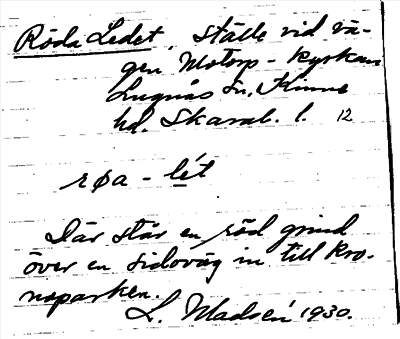 Röda Ledet, ställe vid vä-
gen Motorp - kyrkan
Lugnås sn, Kinne
hd. Skarab. l. 12
røa - lét
Där står en röd grind
över en sidoväg in till kro-
noparken.
L. Madsén 1930.